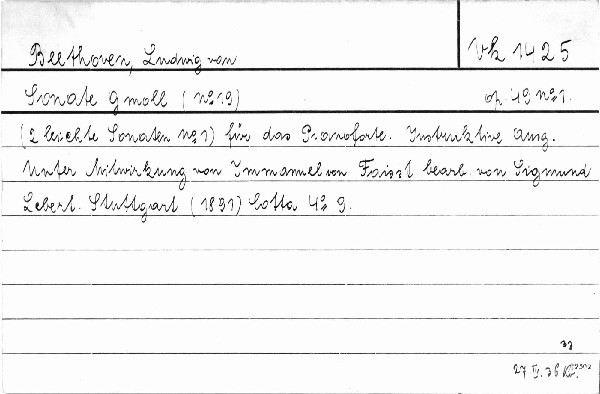 Beethoven, Ludwig van
Vh 1425
Sonate g moll (No 19) op. 49 No 1.
(2 leichte Sonaten No 1) für das Pianoforte. Instruktive Ausg.
Unter Mitwirkung von Immanuel von Faisst bearb. von Sigmund
Lebert. Stuttgart (1891) Cotta 4o 9.
27 IV. 36